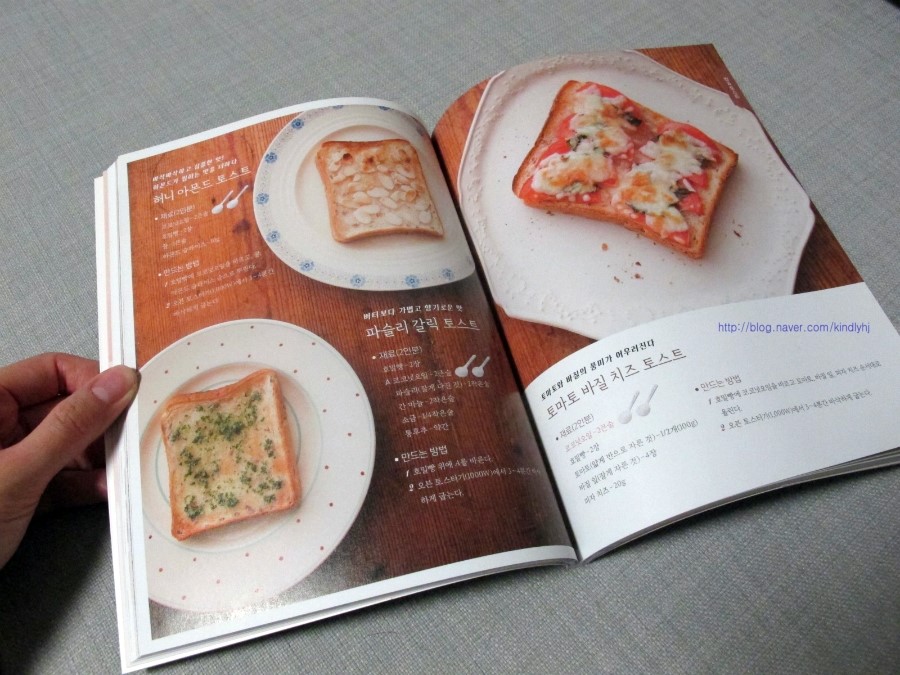 바삭바삭하고 심플한 맛!
허니 아몬드 토스트
• 재료(2인분)
코코넛오일 - 2큰술
호밀빵 - 2장
• 만드는 방법
1 호밀빵에 코코넛오일을 바르고,
버터보다 가볍고 향기로운 맛
파슬리 갈릭 토스트
• 재료(2인분)
호밀빵 - 2장
A 코코넛오일 - 2큰술
파슬리(잘게 다진 것) - 1작은술
간 마늘 - 2작은술
소금 - 1/4작은술
통후추 - 약간
• 만드는 방법
1 호밀빵 위에 A를 바른다.
2 오븐 토스터기(1000W)에서 3~4분간 바삭
하게 굽는다.
http://blog.naver.com/kindlyhj
토마토와 바질의 풍미가 어우러진다
토마토 바질 치즈 토스트
• 재료(2인분)
코코넛오일 - 2큰술
호밀빵 - 2장
토마토(얇게 반으로 자른 것) - 1/2개(100g)
바질 잎(잘게 자른 것) - 4장
피자 치즈 - 20g
• 만드는 방법
1 호밀빵에 코코넛오일을 바르고 토마토, 바질 잎, 피자 치즈 순서대로
올린다.
2 오븐 토스터기(1000W)에서 3~4분간 바삭하게 굽는다.